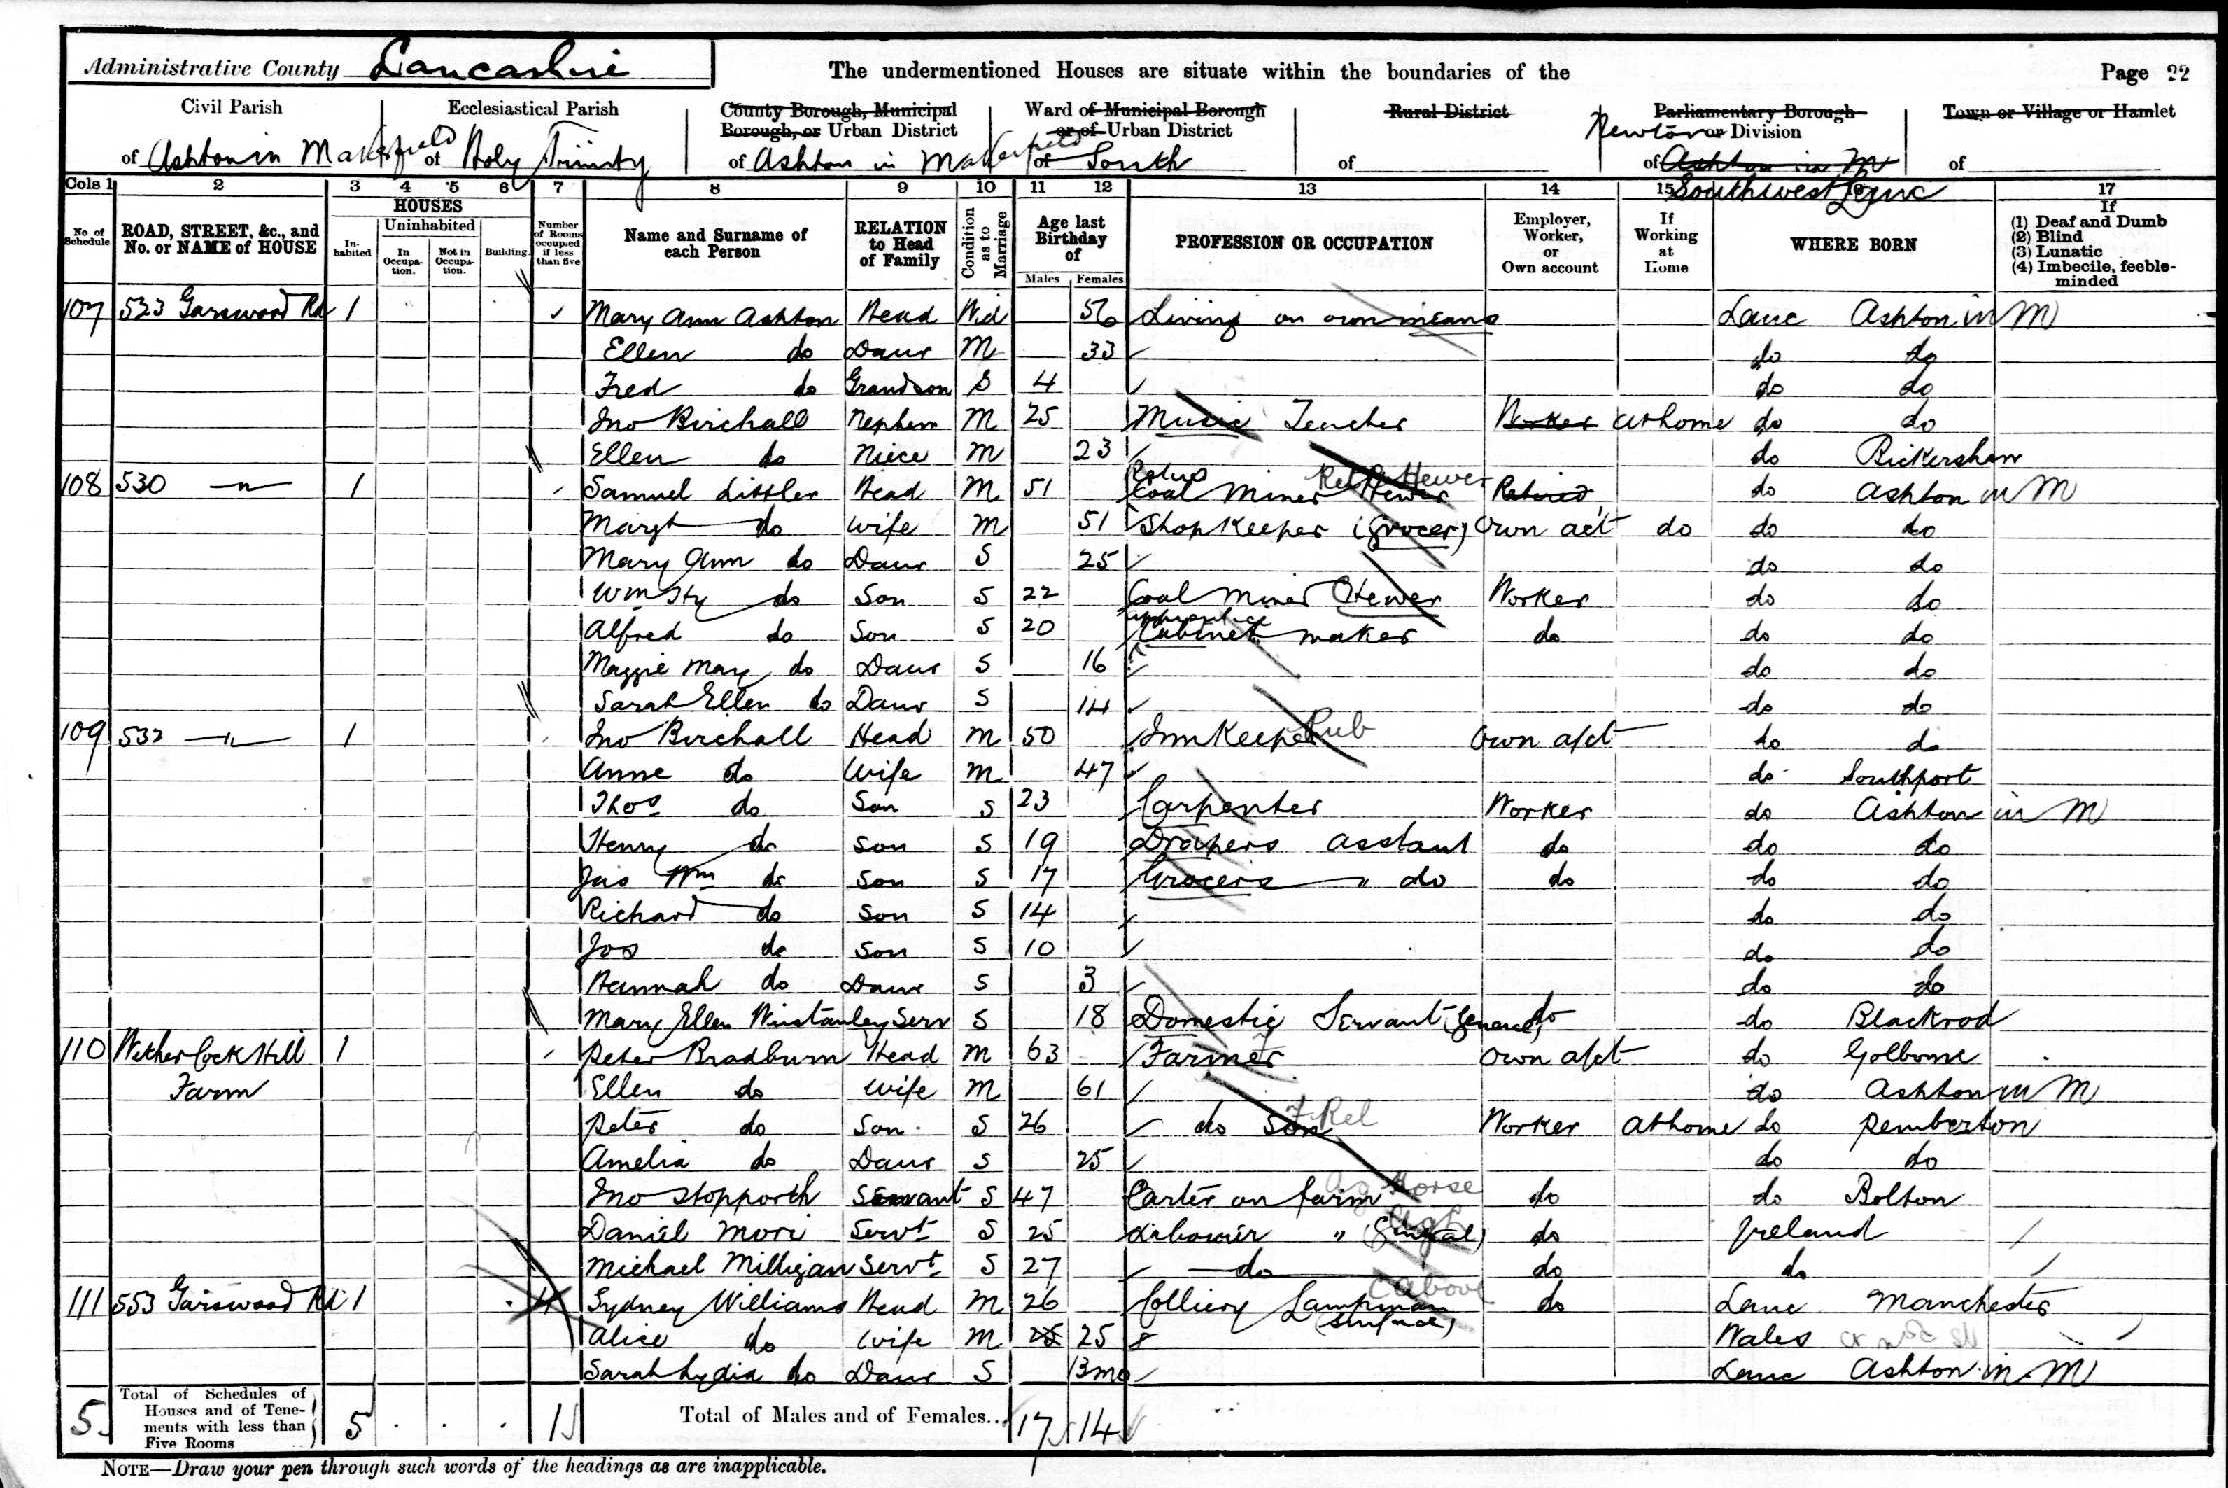 Administrative County Lancashire
The undermentioned Houses are situate within the boundaries of the
Page 22
Civil Parish of Ashton in Makerfield
Ecclesiastical Parish of Holy Trinity
County Borough, Municipal Borough, or Urban District of Ashton in Makerfield
Ward of Municipal Borough or of Urban District of South
Rural District of
Parliamentary Borough or Division of Newton Ashton in M Southwest Lanc
Town or Village or Hamlet of
Cols 1 2 3 4 5 6 7 8 9 10 11 12 13 14 15 16 17
No. of Schedule
ROAD, STREET, &c., and No. or NAME of HOUSE
HOUSES
Inhabited
Uninhabited
In Occupation.
Not in Occupation.
Building
Number of Rooms occupied if less than five
Name and Surname of each Person
RELATION to Head of Family
Condition as to Marriage
Age last Birthday of
Males Females
PROFESSION OR OCCUPATION
Employer, Worker, or Own account
If Working at Home
WHERE BORN
If (1) Deaf and Dumb (2) Blind (3) Lunatic (4) Imbecile, feeble-minded
107 523 Garswood Rd 1 Mary Ann Ashton Head Wid 56 Living on own means Lanc Ashton in M
Ellen do Daur M 33 do do
Fred do Grandson S 4 do do
Jno Birchall Nephew M 25 Music Teacher Worker at home do do
Ellen do Niece M 23 do Bickershaw
108 530 —"— 1 Samuel Littler Head M 51 Coal Miner Hewer Ret Hewer Retired do Ashton in M
Margt do Wife M 51 Shop Keeper (Grocer) Own a/ct do do do
Mary Ann do Daur S 25 do do
Wm Hy do Son S 22 Coal Miner Hewer Worker do do
Alfred do Son S 20 apprentice Cabinet maker do do do
Maggie May do Daur S 16 do do
Sarah Ellen do Daur S 14 do do
109 532 —"— 1 Jno Birchall Head M 50 Inn Keeper Pub Own a/ct do do
Anne do Wife M 47 do Southport
Thos do Son S 23 Carpenter Worker do Ashton in M
Henry do Son S 19 Drapers Asstant do do do
Jas Wm do Son S 17 Grocers " do do do do
Richard do Son S 14 do do
Jos do Son S 10 do do
Hannah do Daur S 3 do do
Mary Ellen Winstanley Serv S 18 Domestic Servant (General) do do Blackrod
110 Wether Cock Hill 1 Peter Bradburn Head M 63 Farmer Own a/ct do Golborne
Farm Ellen do Wife M 61 do Ashton in M
Peter do Son S 26 do Son F Rel Worker at home do Pemberton
Amelia do Daur S 25 do do
Jno Stopporth Servant S 47 Carter on farm Ag Horse do do Bolton
Daniel Mori Servt S 25 Labourer " (General) do Ireland
Michael Milligan Servt S 27 do do do
111 553 Garswood Rd 1 4 Sydney Williams Head M 26 Colliery Lampman (Surface) above do Lanc Manchester
Alice do Wife M 25 25 Wales
Sarah Lydia do Daur S 3mo Lanc Ashton in M
5 Total of Schedules of Houses and of Tenements with less than Five Rooms 5 1 Total of Males and of Females... 17 14
NOTE—Draw your pen through such words of the headings as are inapplicable.